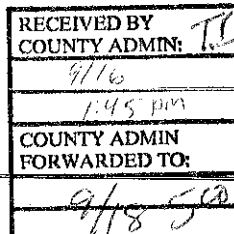 RECEIVED BY
COUNTY ADMIN:
9/16
1:45 pm
COUNTY ADMIN
FORWARDED TO:
9/18